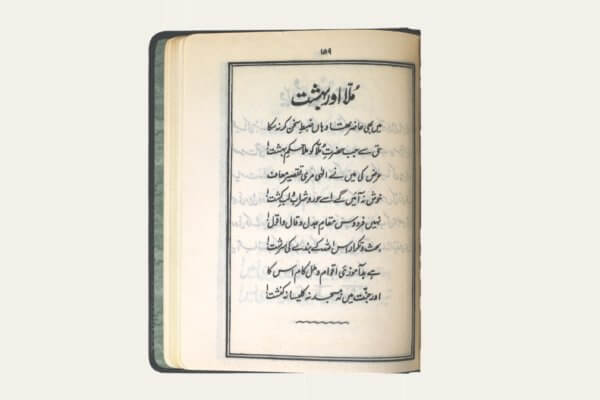 ۱۵۹
مُلّا اور بہشت
میں بھی حاضر تھا وہاں ضبطِ سخن کر نہ سکا
حق سے جب حضرتِ مُلّا کو ملا حکمِ بہشت!
عرض کی میں نے الٰہی مری تقصیر معاف
خوش نہ آئیں گے اسے حور و شراب و لبِ کشت!
نہیں فردوس مقامِ جدل و قال و اقول!
بحث و تکرار اس اللہ کے بندے کی سرشت!
ہے بدآموزیِ اقوام و ملل کام اس کا
اور جنّت میں نہ مسجد نہ کلیسا نہ کنشت!